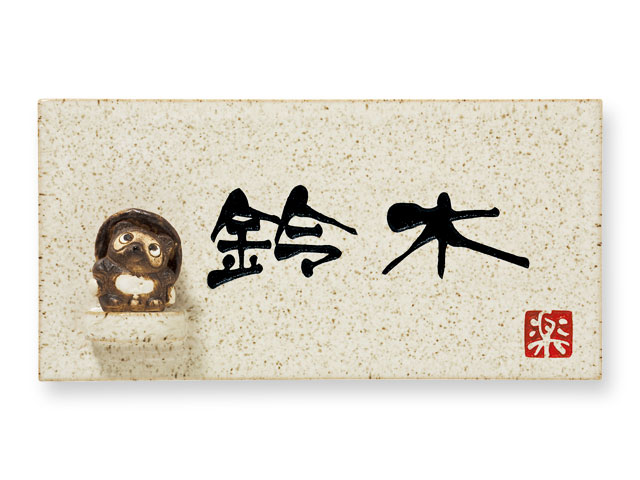 鈴木
楽